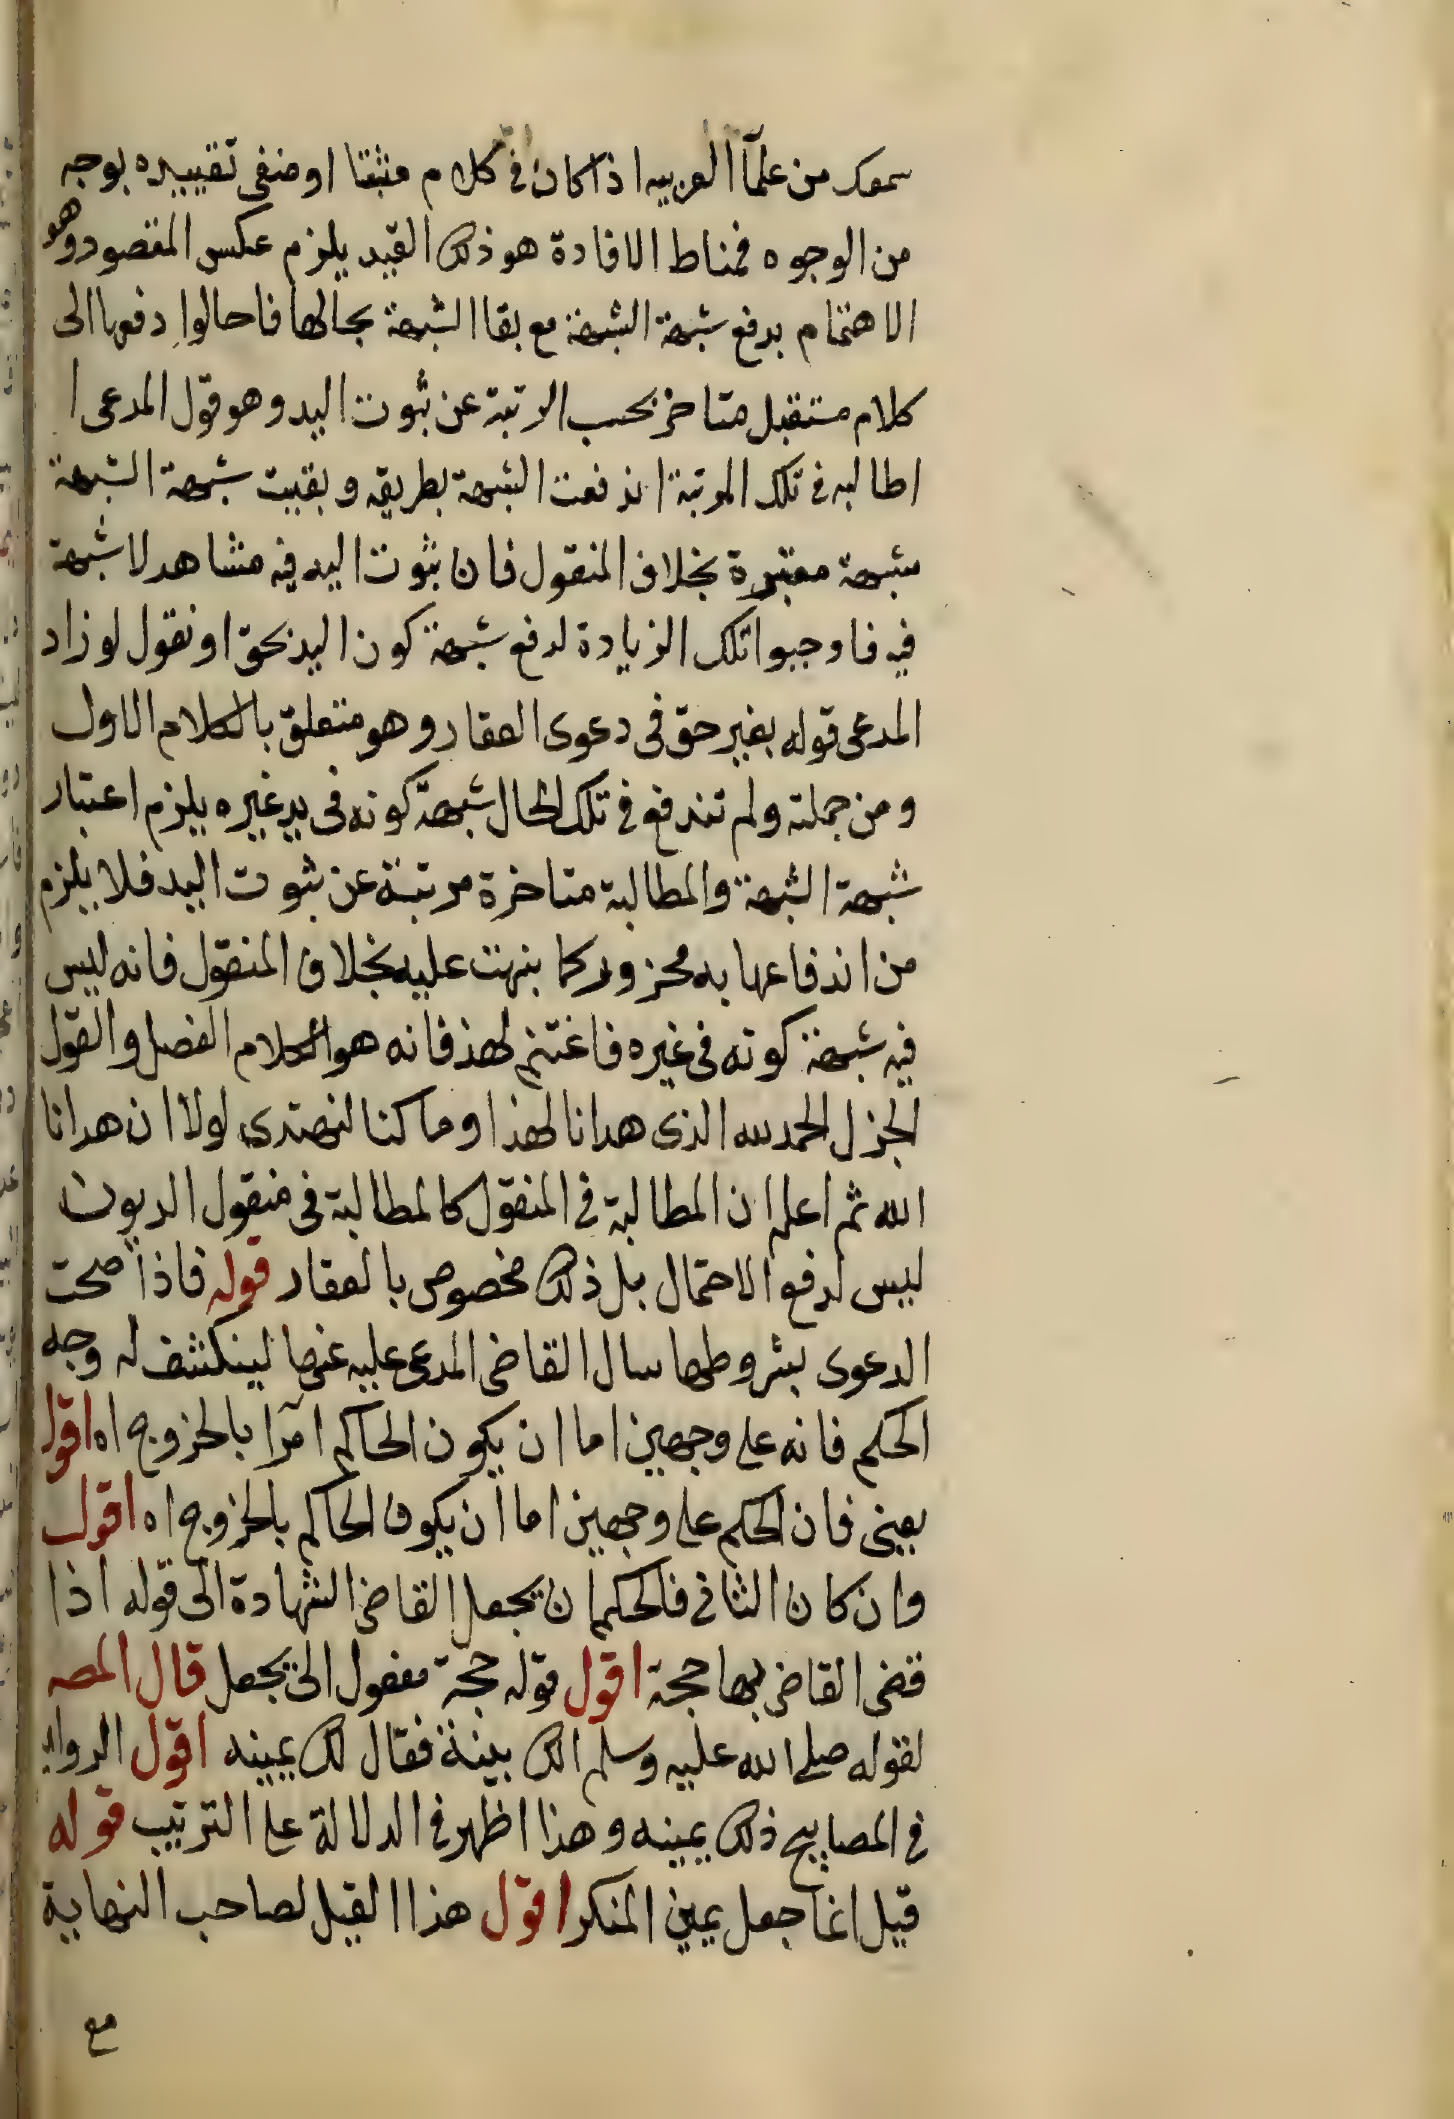 سمعك من علمآ العربيه اذا كان في كلام مثبتا او منفى تقييده بوجه
من الوجوه فمناط الافادة هو ذلك القيد يلزم عكس المقصود وهو
الاهتمام بدفع شبهة الشبهة مع بقا الشبهة بحالها فاحالوا دفعها الى
كلام مستقبل متاخر بحسب الرتبة عن ثبوت اليد وهو قول المدعى ا
اطالبه في تلك المرتبة اندفعت الشبهة بطريقه وبقيت شبهة الشبهة
شبهة معتبرة بخلاف المنقول فان ثبوت اليد فيه مشاهد لا شبهة
فيه فاوجبوا تلك الزيادة لدفع شبهة كون اليد بحق او نقول لو زاد
المدعى قوله بغير حق فى دعوى العقار وهو متعلق بالكلام الاول
ومن جملته ولم تندفع في تلك الحال شبهة كونه فى يد غيره يلزم اعتبار
شبهة الشبهة والمطالبة متاخرة مرتبة عن ثبوت اليد فلا يلزم
من اندفاعها به محزور كما بنهت عليه بخلاف المنقول فانه ليس
فيه شبهة كونه فى غيره فاغتنم لهذ فانه هو الكلام الفصل والقول
الجزل الحمد لله الذى هدانا لهذا وما كنا لنهتدى لولا ان هدانا
الله ثم اعلم ان المطالبة في المنقول كالمطالبة فى منقول الديون
ليس لدفع الاحتمال بل ذلك مخصوص بالعقار قوله فاذا صحت
الدعوى بشروطها سال القاضى المدعى عليه عنها لينكشف له وجه
الحكم فانه على وجهين اما ان يكون الحاكم امرا بالخروج اه اقول
يعنى فان الحكم على وجهين اما ان يكون الحاكم بالخروج اه اقول
وان كان الثانى فالحكم ان يجعل القاضى الشهادة الى قوله اذا
قضى القاضى بها حجة اقول قوله حجة مفعول الى يجعل قال المصه
لقوله صلى الله عليه وسلم الك بينة فقال لك يمينه اقول الروايه
في المصابيح ذلك يمينه وهذا اظهر في الدلالة على الترتيب قوله
قيل انما جعل يمين المنكر اقول هذا القيل لصاحب النهاية
مع